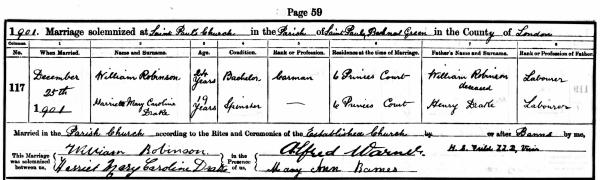 Page 59
1901. Marriage solemnized at Saint Paul's Church in the Parish of Saint Paul, Bethnal Green in the County of London
Columns. 1 2 3 4 5 6 7 8
No. When Married. Name and Surname. Age. Condition. Rank or Profession. Residence at the time of Marriage. Father's Name and Surname. Rank or Profession of Father.
117 December 25th 1901 William Robinson 24 Years Bachelor Carman 6 Princes Court William Robinson deceased Labourer
Harriet Mary Caroline Drake 19 Years Spinster — 6 Princes Court Henry Drake Labourer
Married in the Parish Church according to the Rites and Ceremonies of the Established Church by or after Banns by me,
This Marriage was solemnized between us, William Robinson. Harriet Mary Caroline Drake in the Presence of us, Alfred Mary Ann Barnes